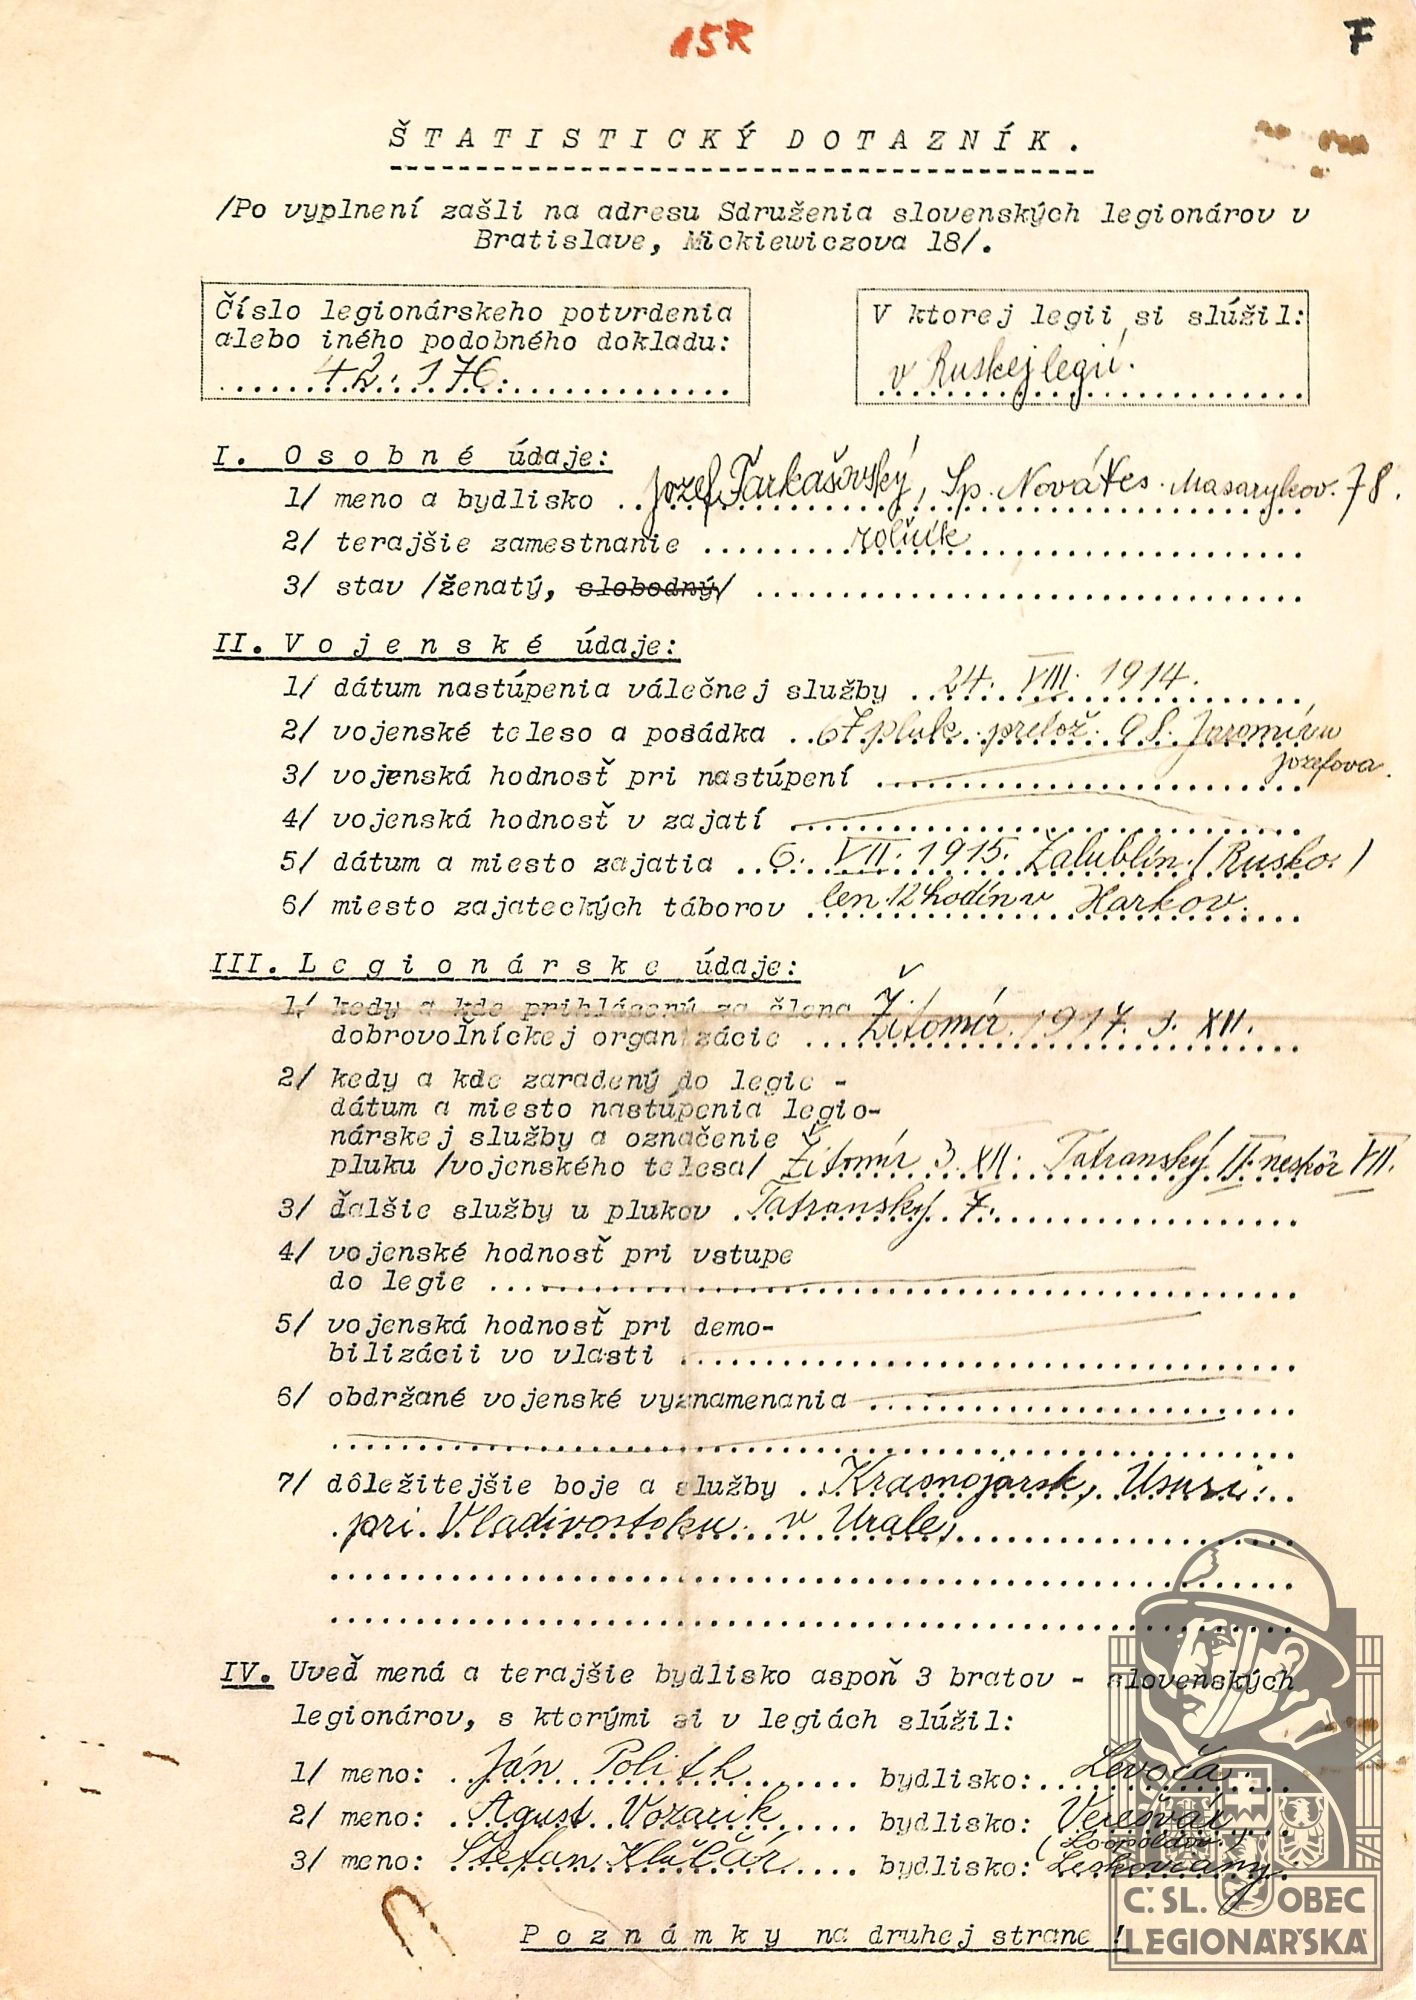 15R
F
ŠTATISTICKÝ DOTAZNÍK.
/Po vyplnení zašli na adresu Sdruženia slovenských legionárov v
Bratislave, Mickiewiczova 18/.
Číslo legionárskeho potvrdenia
alebo iného podobného dokladu:
42.176.
V ktorej legii si slúžil:
v Ruskej legii.
I. Osobné údaje:
1/ meno a bydlisko Jozef Farkašovský, Sp. Nová Ves. Masarykov. 78.
2/ terajšie zamestnanie roľník
3/ stav /ženatý, slobodný/
II. Vojenské údaje:
1/ dátum nastúpenia válečnej služby 24. VIII. 1914.
2/ vojenské teleso a posádka 67 pluk. prelož. 98. Jaromíru
Jozefova.
3/ vojenská hodnosť pri nastúpení
4/ vojenská hodnosť v zajatí
5/ dátum a miesto zajatia 6. VII. 1915. Žalublín. (Rusko.)
6/ miesto zajateckých táborov len 12 hodín v Harkov.
III. Legionárske údaje:
1/ kedy a kde prihlásený za člena
dobrovoľníckej organizácie Žitomír. 1917. 3. XII.
2/ kedy a kde zaradený do legie -
dátum a miesto nastúpenia legio-
nárskej služby a označenie
pluku /vojenského telesa/ Žitomír 3. XII. Tatranský II. neskôr VII.
3/ ďalšie služby u plukov Tatranský 7.
4/ vojenské hodnosť pri vstupe
do legie
5/ vojenská hodnosť pri demo-
bilizácii vo vlasti
6/ obdržané vojenské vyznamenania
7/ dôležitejšie boje a služby Krasnojarsk, Usuri.
pri Vladivostoku v Urale,
IV. Uveď mená a terajšie bydlisko aspoň 3 bratov - slovenských
legionárov, s ktorými si v legiách slúžil:
1/ meno: Ján Polith bydlisko: Levoča
2/ meno: Agust Vozarik bydlisko: Verešvár
(Leopoldov.)
3/ meno: Štefan Kľúčár bydlisko: Leskovčany
Poznámky na druhej strane !
Č. SL. OBEC
LEGIONÁŘSKÁ